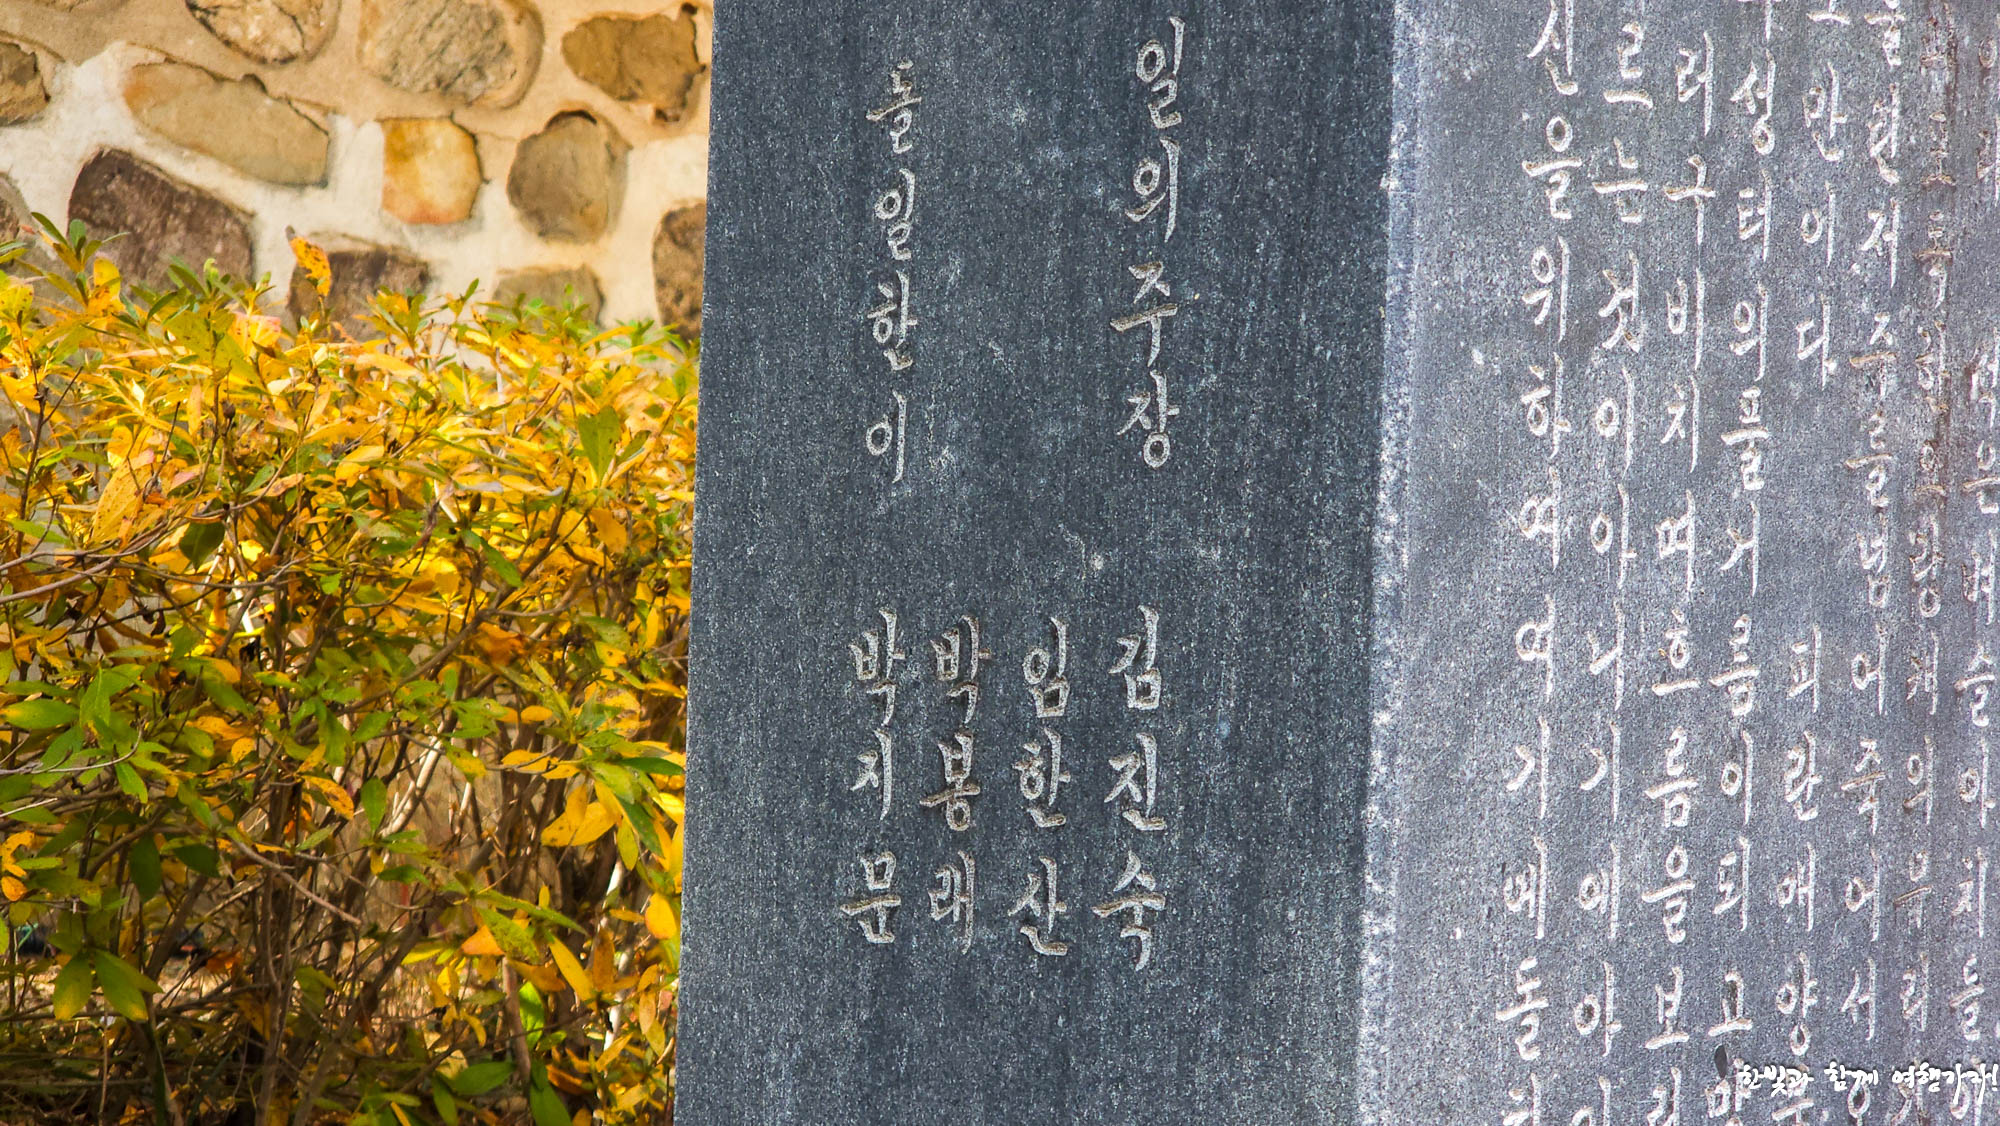 은벼슬아치들
캐의우리
저주를넘어죽어서
만이다 피란애양
성터의풀거름이되고
러구비치며흐름을보
르는것이아니기에아
신을위하여여기 돌
일의주장 김진숙
임한산
박봉래
돌일한이 박지문
한빛과 함께 여행가자!